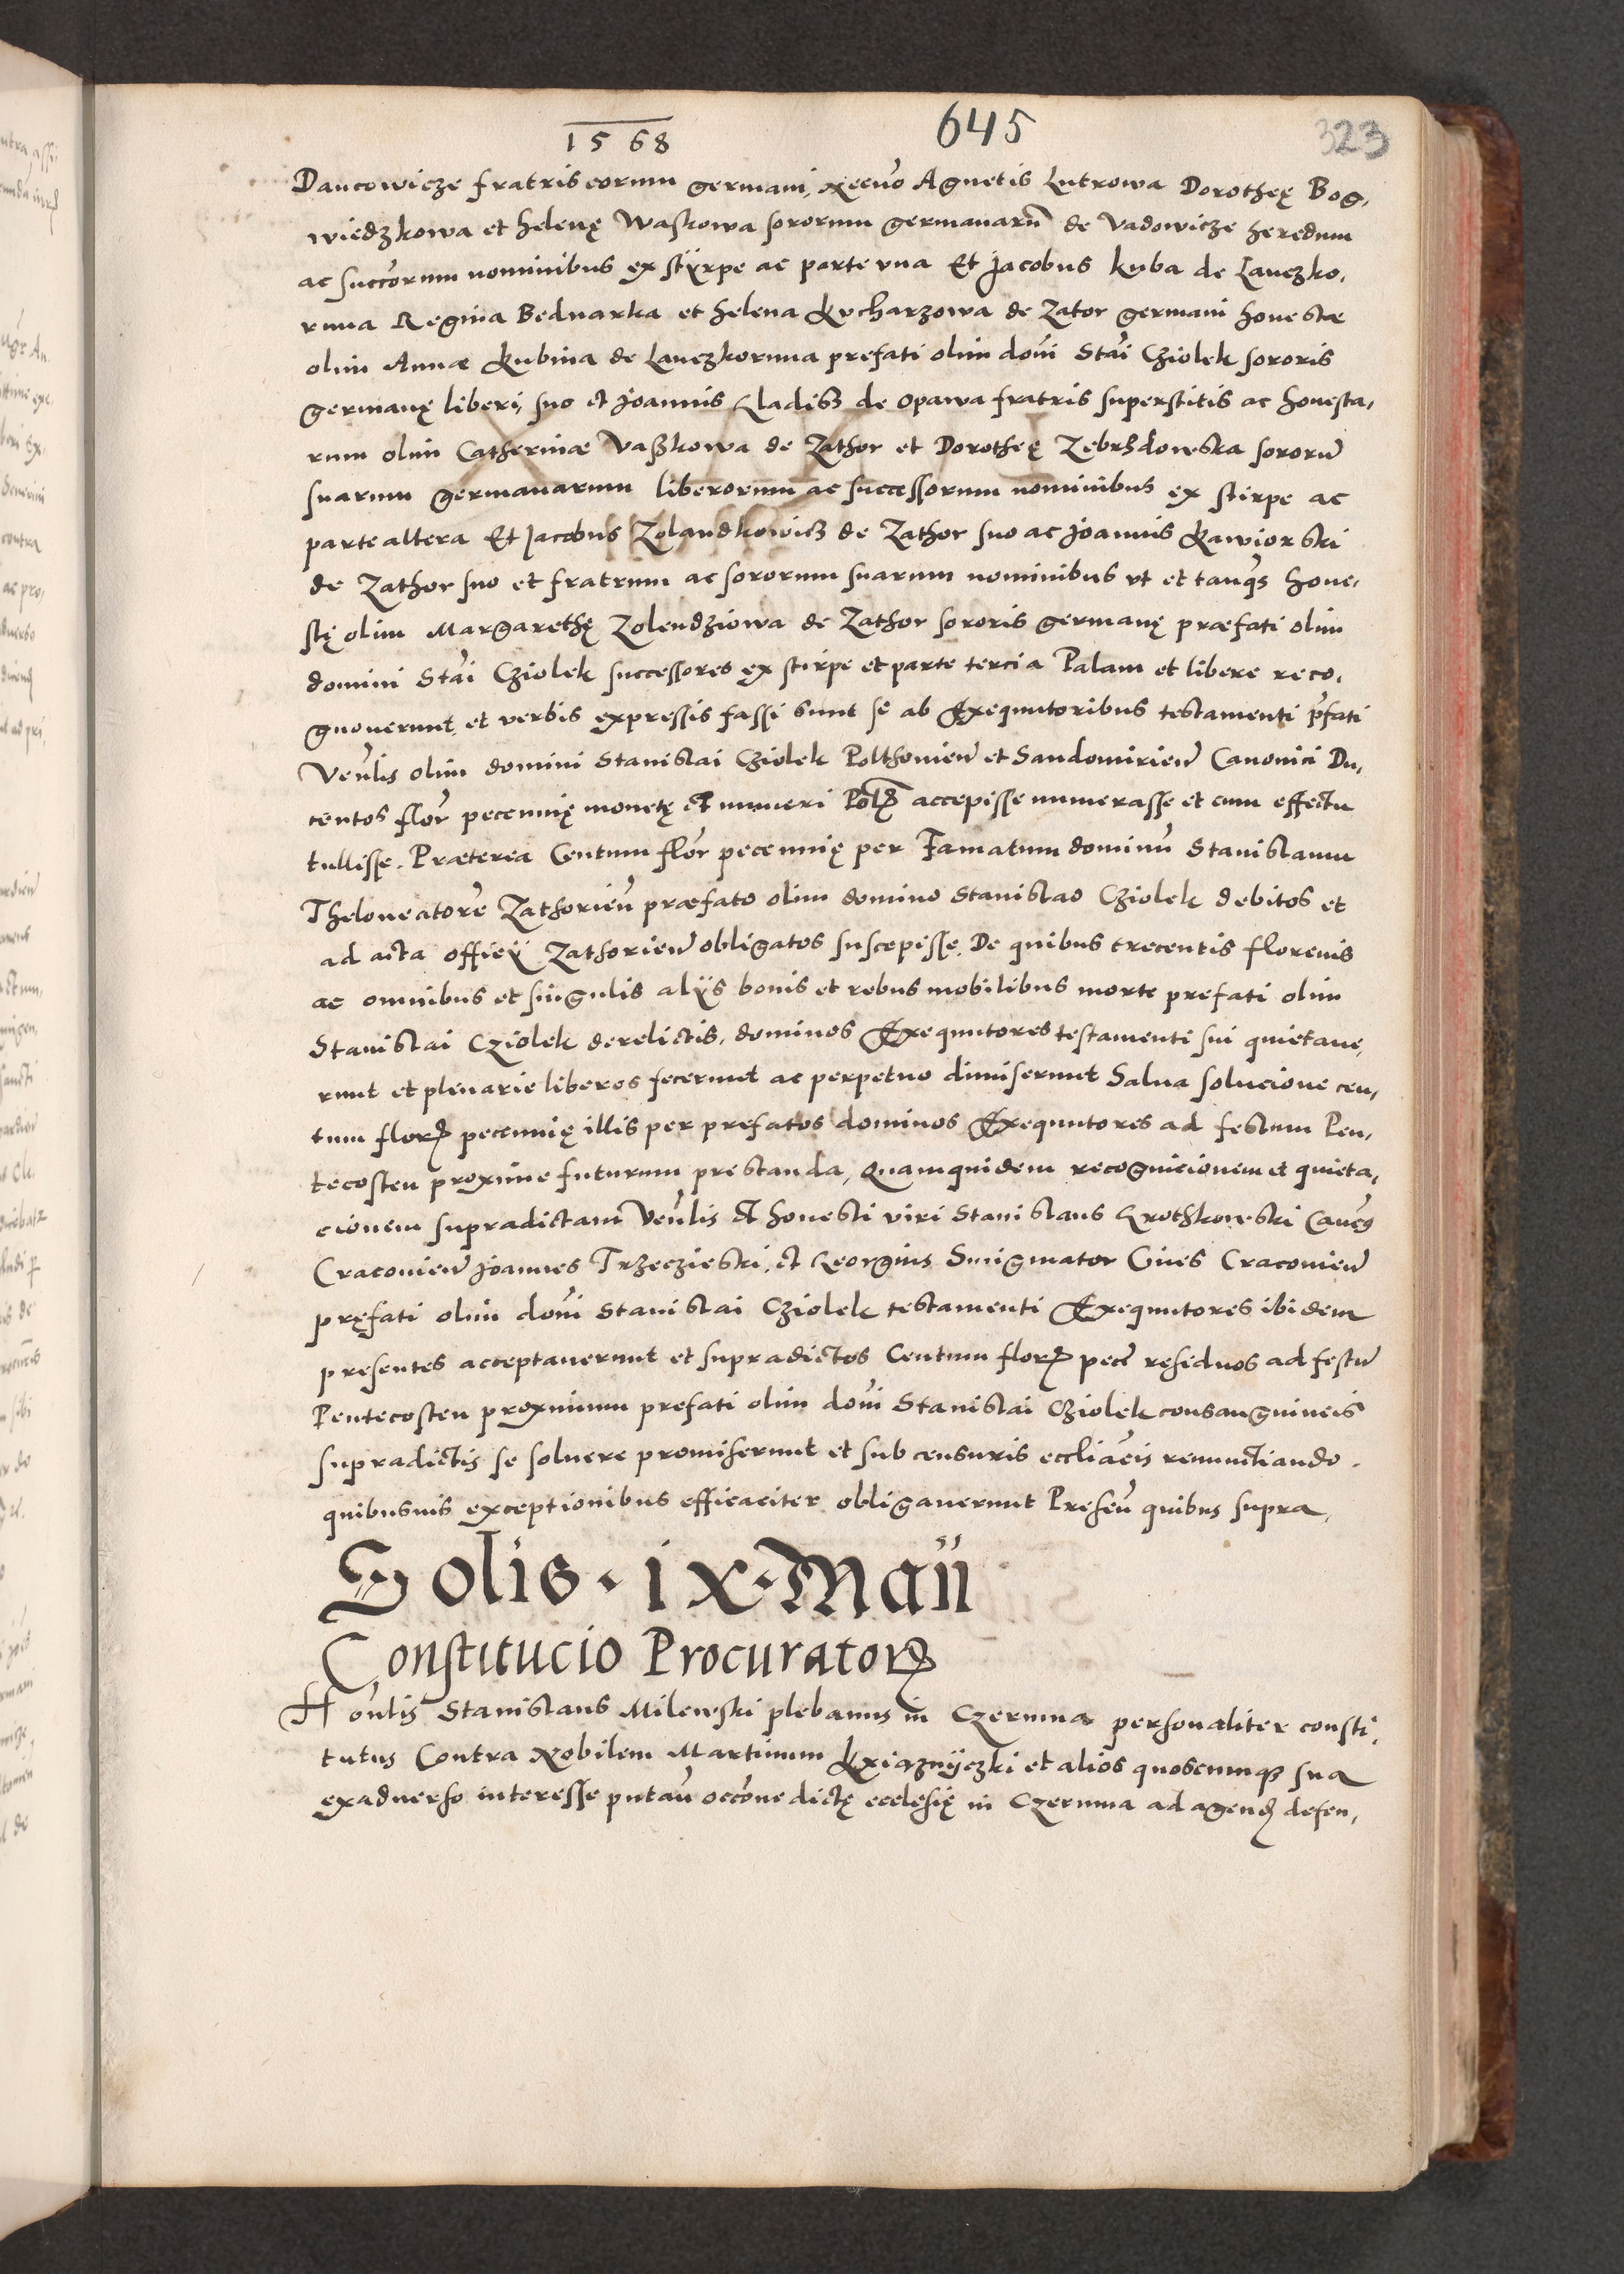 1568 645 323
Dancowicze fratris eorum germani, necnō Agnetis Lutrowa Dorotheę Bog,
wiedzkowa et Helenę Waskowa sororum germanarū de Vadowicze heredum
ac succōrum nominibus ex stÿrpe ac parte vna Et Jacobus Kuba de Lanczko,
runa Regina Bednarka et Helena Kucharzowa de Zator germani honestæ
olim Annæ Kubina de Lanczkoruna prefati olim dōni Stāi Cziolek sororis
germanę liberi, suo et Joannis Gladisz de Opawa fratris superstitis ac honesta,
rum olim Catherinæ Vaszkowa de Zathor et Dorotheę Zebrzdowska sororū
suarum germanarum liberorum ac successorum nominibus ex stirpe ac
parte altera Et Jacobus Zolandkowicz de Zathor suo ac Joannis Kawiorski
de Zathor suo et fratrum ac sororum suarum nominibus vt et tanqȝ hone,
stę olim Margarethę Zolendziowa de Zathor sororis germanę præfati olim
domini Stāi Cziolek successores ex stirpe et parte tercia Palam et libere reco,
gnouerunt, et verbis expressis fassi sunt se ab Exequutoribus testamenti p̄fati
Venlīs olim domini Stanislai Cziolek Polthonien̄ et Sandomirien̄ Canonici Du,
centos flor̄ pecunnię monetę et numeri Polꝝ accepisse numerasse et cum effectu
tullisse. Præterea Centum flor̄ pecunnię per Famatum dominū Stanislaum
Theloneatorē Zathorien̄ præfato olim domino Stanislao Cziolek debitos et
ad acta officÿ Zathorien̄ obligatos suscepisse. De quibus trecentis florenis
ac omnibus et singulis alÿs bonis et rebus mobilibus morte prefati olim
Stanislai Cziolek derelictis, dominos Exequutores testamenti sui quietaue,
runt et plenarie liberos fecerunt ac perpetuo dimiserunt Salua solucione cen,
tum florꝝ pecunnię illis per prefatos dominos Exequutores ad festum Pen,
tecosten proxime futurum prestanda, Quamquidem recognicionem et quieta,
cionem supradictam Venlīs et honesti viri Stanislaus Grothkowski Canc̄us
Cracovien̄ Joannes Trzeczieski, et Georgius Smigmator Ciues Cracovien̄
pręfati olim dōni Stanislai Cziolek testamenti Exequutores ibidem
presentes acceptauerunt et supradictos Centum florꝝ pecc̄ residuos ad festū
Pentecosten proximum prefati olim dōni Stanislai Cziolek consanguineis
supradictis se soluere promiserunt et sub censuris ecclīacis renunctiando.
quibusuis exceptionibus efficaciter obligauerunt Presen̄ quibus supra,
Solis · ix · Maii
Constitucio Procuratorꝝ
Honlīs Stanislaus Milewski plebanus in Czermna personaliter consti,
tutus Contra Nobilem Martinum Kxiaznÿczki et alios quoscumqȝ sua
ex aduerso interesse putan̄ occōne dictę ecclesię in Czermna ad agenꝺ defen,